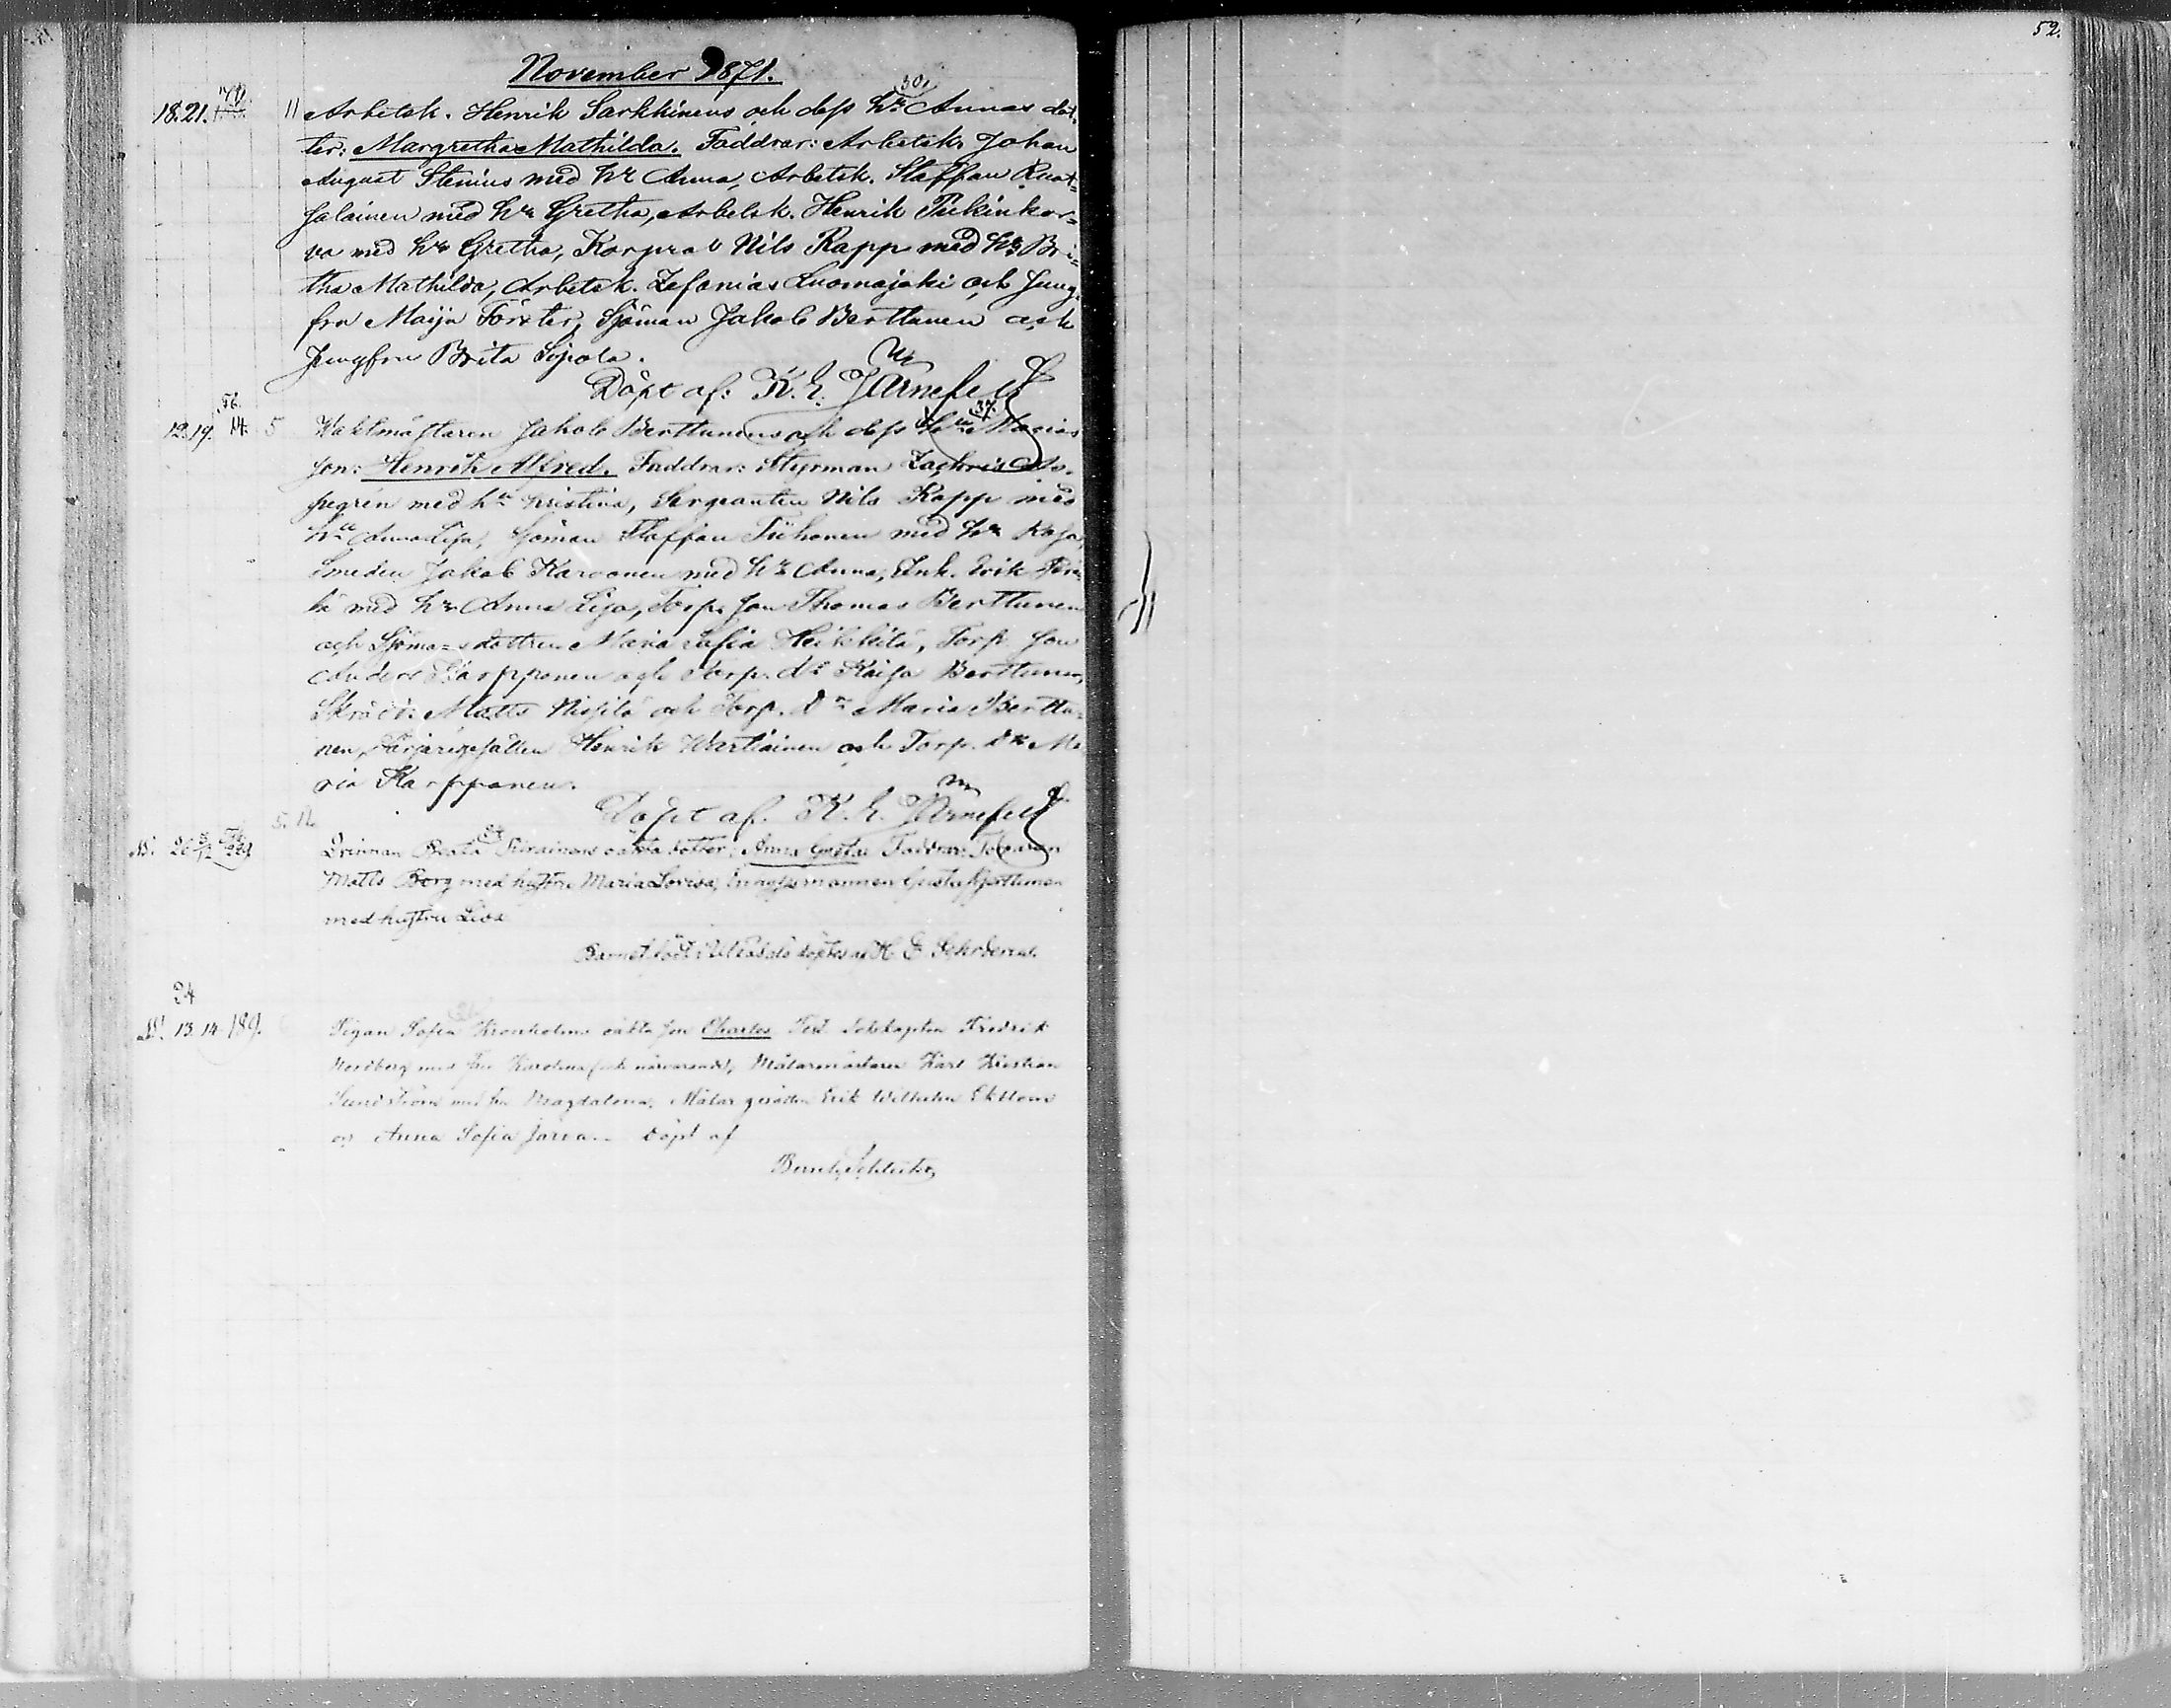 52.
November 1871.
30.
18. 21. 11 Arbetsk. Henrik Sarkkinens och dess h:u Annas dot-
ter: Margretha Mathilda. Faddrar: Arbetsk. Johan
August Stenius med h:u Anna, Arbetsk. Staffan Ruot-
salainen med h:u Gretha, Arbetsk. Henrik Tiikinkor-
va med h:u Gretha, Korpral Nils Rapp med h:u Bri-
tha Mathilda, Arbetsk. Zefanias Luomajoki och Jung-
fru Maija Förster, Sjöman Jakob Berttunen och
Jungfru Brita Sipola.
Döpt af: K. E. Järnefelt
56. 37.
12. 19. 14. 5 Waktmästaren Jakob Berttunens och dess h:u Marias
son: Henrik Alfred. Faddrar: Styrman Zachris As-
pegren med h:u Kristina, Sergeanten Nils Rapp med
h:u Anna Lisa, Sjöman Staffan Tiihonen med h:u Kajsa,
Smeden Jakob Karvonen med h:u Anna, Inh. Erik
med h:u Anna Lisa, Torp. son Thomas Berttunen
och Sjömansdottren Maria Sofia Heikkilä, Torp. son
Anders Karpponen och Torp. d:r Kaisa Berttunen,
Skräd. Matts Nissilä och Torp. d:r Maria Berttu-
nen, Henrik Wartiainen och Torp. d:r Ma-
ria Karpponen.
Döpt af. K. E. Järnefelt
5. 12.
Qvinnan Beata oäkta dotter: Anna Gustava Faddrar:
Matts Borg med hustru Maria Lovisa, Gustaf
med hustru Lisa
Barnet född i Uleåborg döptes af H. E.
24
13. 14 189. Pigan Sofia Kronholms oäkta son Charles Test. Fredrik
Nordberg med fru Karolina (ick närvarande), Målaremästaren Karl Kristian
Sundström med fru Magdalena, Målar gesällen Erik Wilhelm Ekblom
o Anna Sofia Jarva. Döpt af